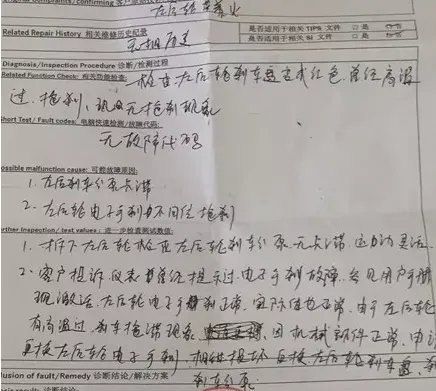 Original Complaints/confirming 客户
左后轮
Related Repair History 相关维修历史纪录
无相关历史
是否适用于相关 TIPS 文件 □ 是
是否适用于相关 SI 文件 □ 是
Diagnosis/Inspection Procedure 诊断/检测过程
Related Function Check: 相关功能检查:
检查左后轮刹车 变成红色,曾经高温
过,抱刹,现场无抱刹现象
Short Test/ Fault codes: 电脑快速检测/故障代码:
无故障代码
Possible malfunction cause: 可能故障原因:
1. 左后刹车分泵卡滞
2. 左后轮电子手刹分不回位抱刹
Further inspection/ test values: 进一步检查测试数值:
1. 拆下左后轮检查左后轮刹车分泵无卡滞 运动灵活
2. 客户投诉仪表曾经提示过电子手刹故障 用户手册
现激活左后轮电子手刹正常,实际 也正常,由于左后轮
有高温过,刹车拖滞现象 因机械部件正常,申请
更换左后轮电子手刹 更换左后轮刹车
Conclusion of fault/Remedy 诊断结论/解决方案
刹车分泵